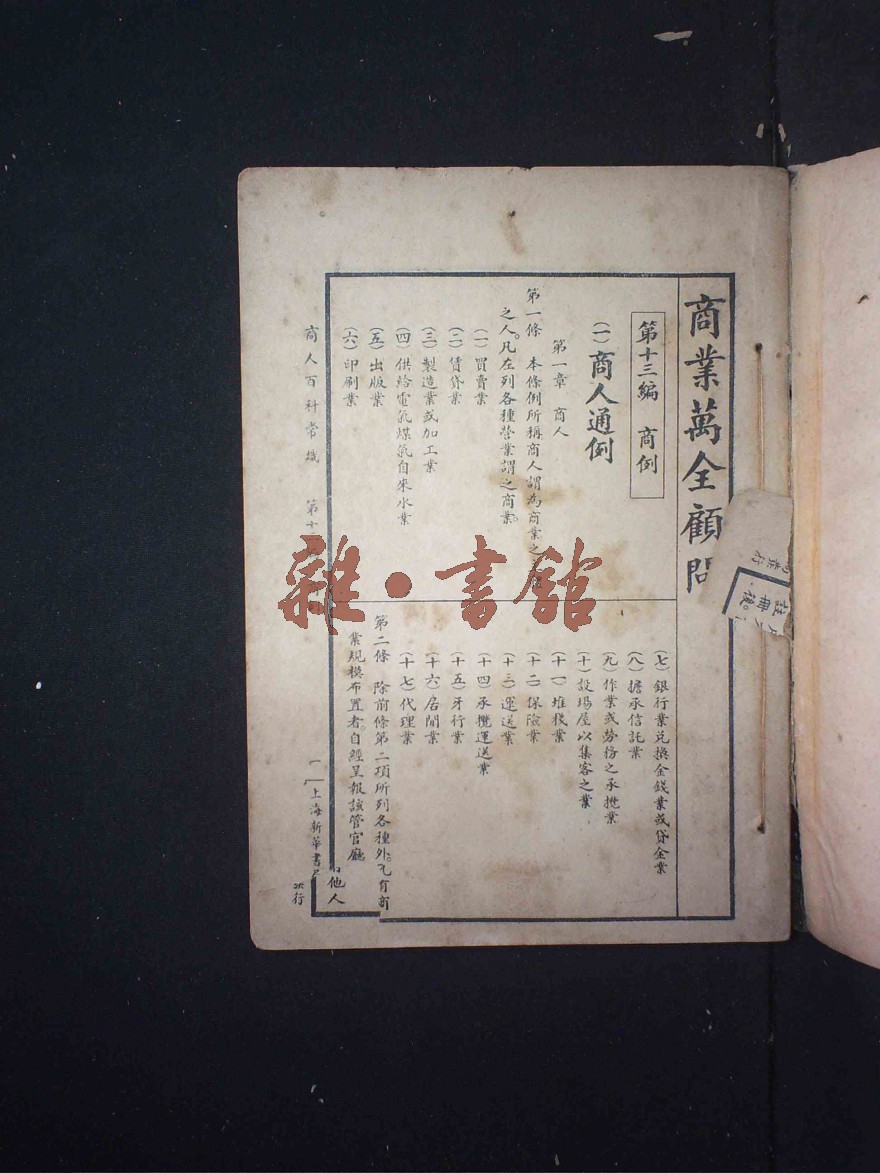 商業萬全顧問
第十三編 商例
(一)商人通例
第一章 商人
第一條 本條例所稱商人謂為商業之
之人。凡左列各種營業謂之商業。
(一)買賣業
(二)賃貸業
(三)製造業或加工業
(四)供給電氣煤氣自來水業
(五)出版業
(六)印刷業
(七)銀行業兌換金錢業或貸金業
(八)擔承信託業
(九)作業或勞務之承攬業
(十)設場屋以集客之業
(十一)堆棧業
(十二)保險業
(十三)運送業
(十四)承攬運送業
(十五)牙行業
(十六)居間業
(十七)代理業
第二條 除前條第二項所列各種外。凡有商
業規模布置者自經呈報該管官廳
他人
商人百科常識 第十
一
上海新華書局
行
註冊後。
雜·書館